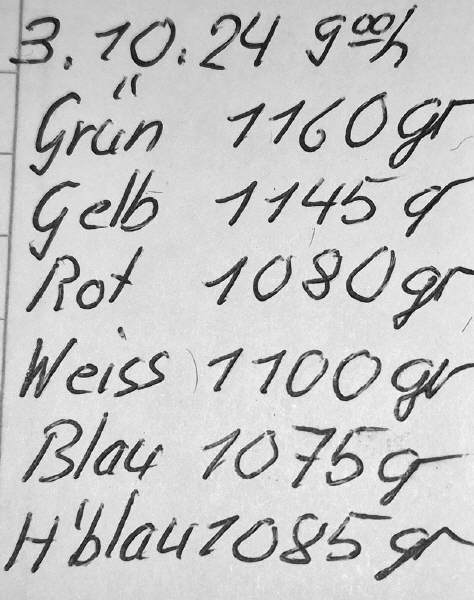 3.10.24 9ººh
Grün 1160gr
Gelb 1145g
Rot 1080gr
Weiss 1100gr
Blau 1075g
H'blau 1085gr